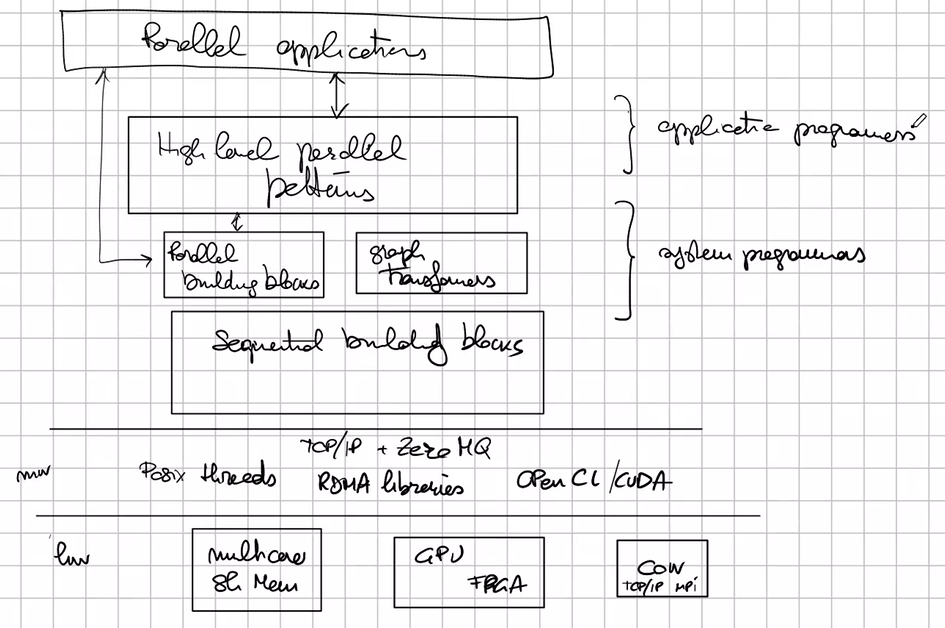 Parallel applications
High level parallel
patterns
application programmers
Parallel
building blocks
graph
transformers
system programmers
Sequential building blocks
TCP/IP + Zero MQ
mw
Posix threads
RDMA libraries
OPen CL/CUDA
hw
multicore
Sh Mem
GPU
FPGA
COW
TCP/IP MPi